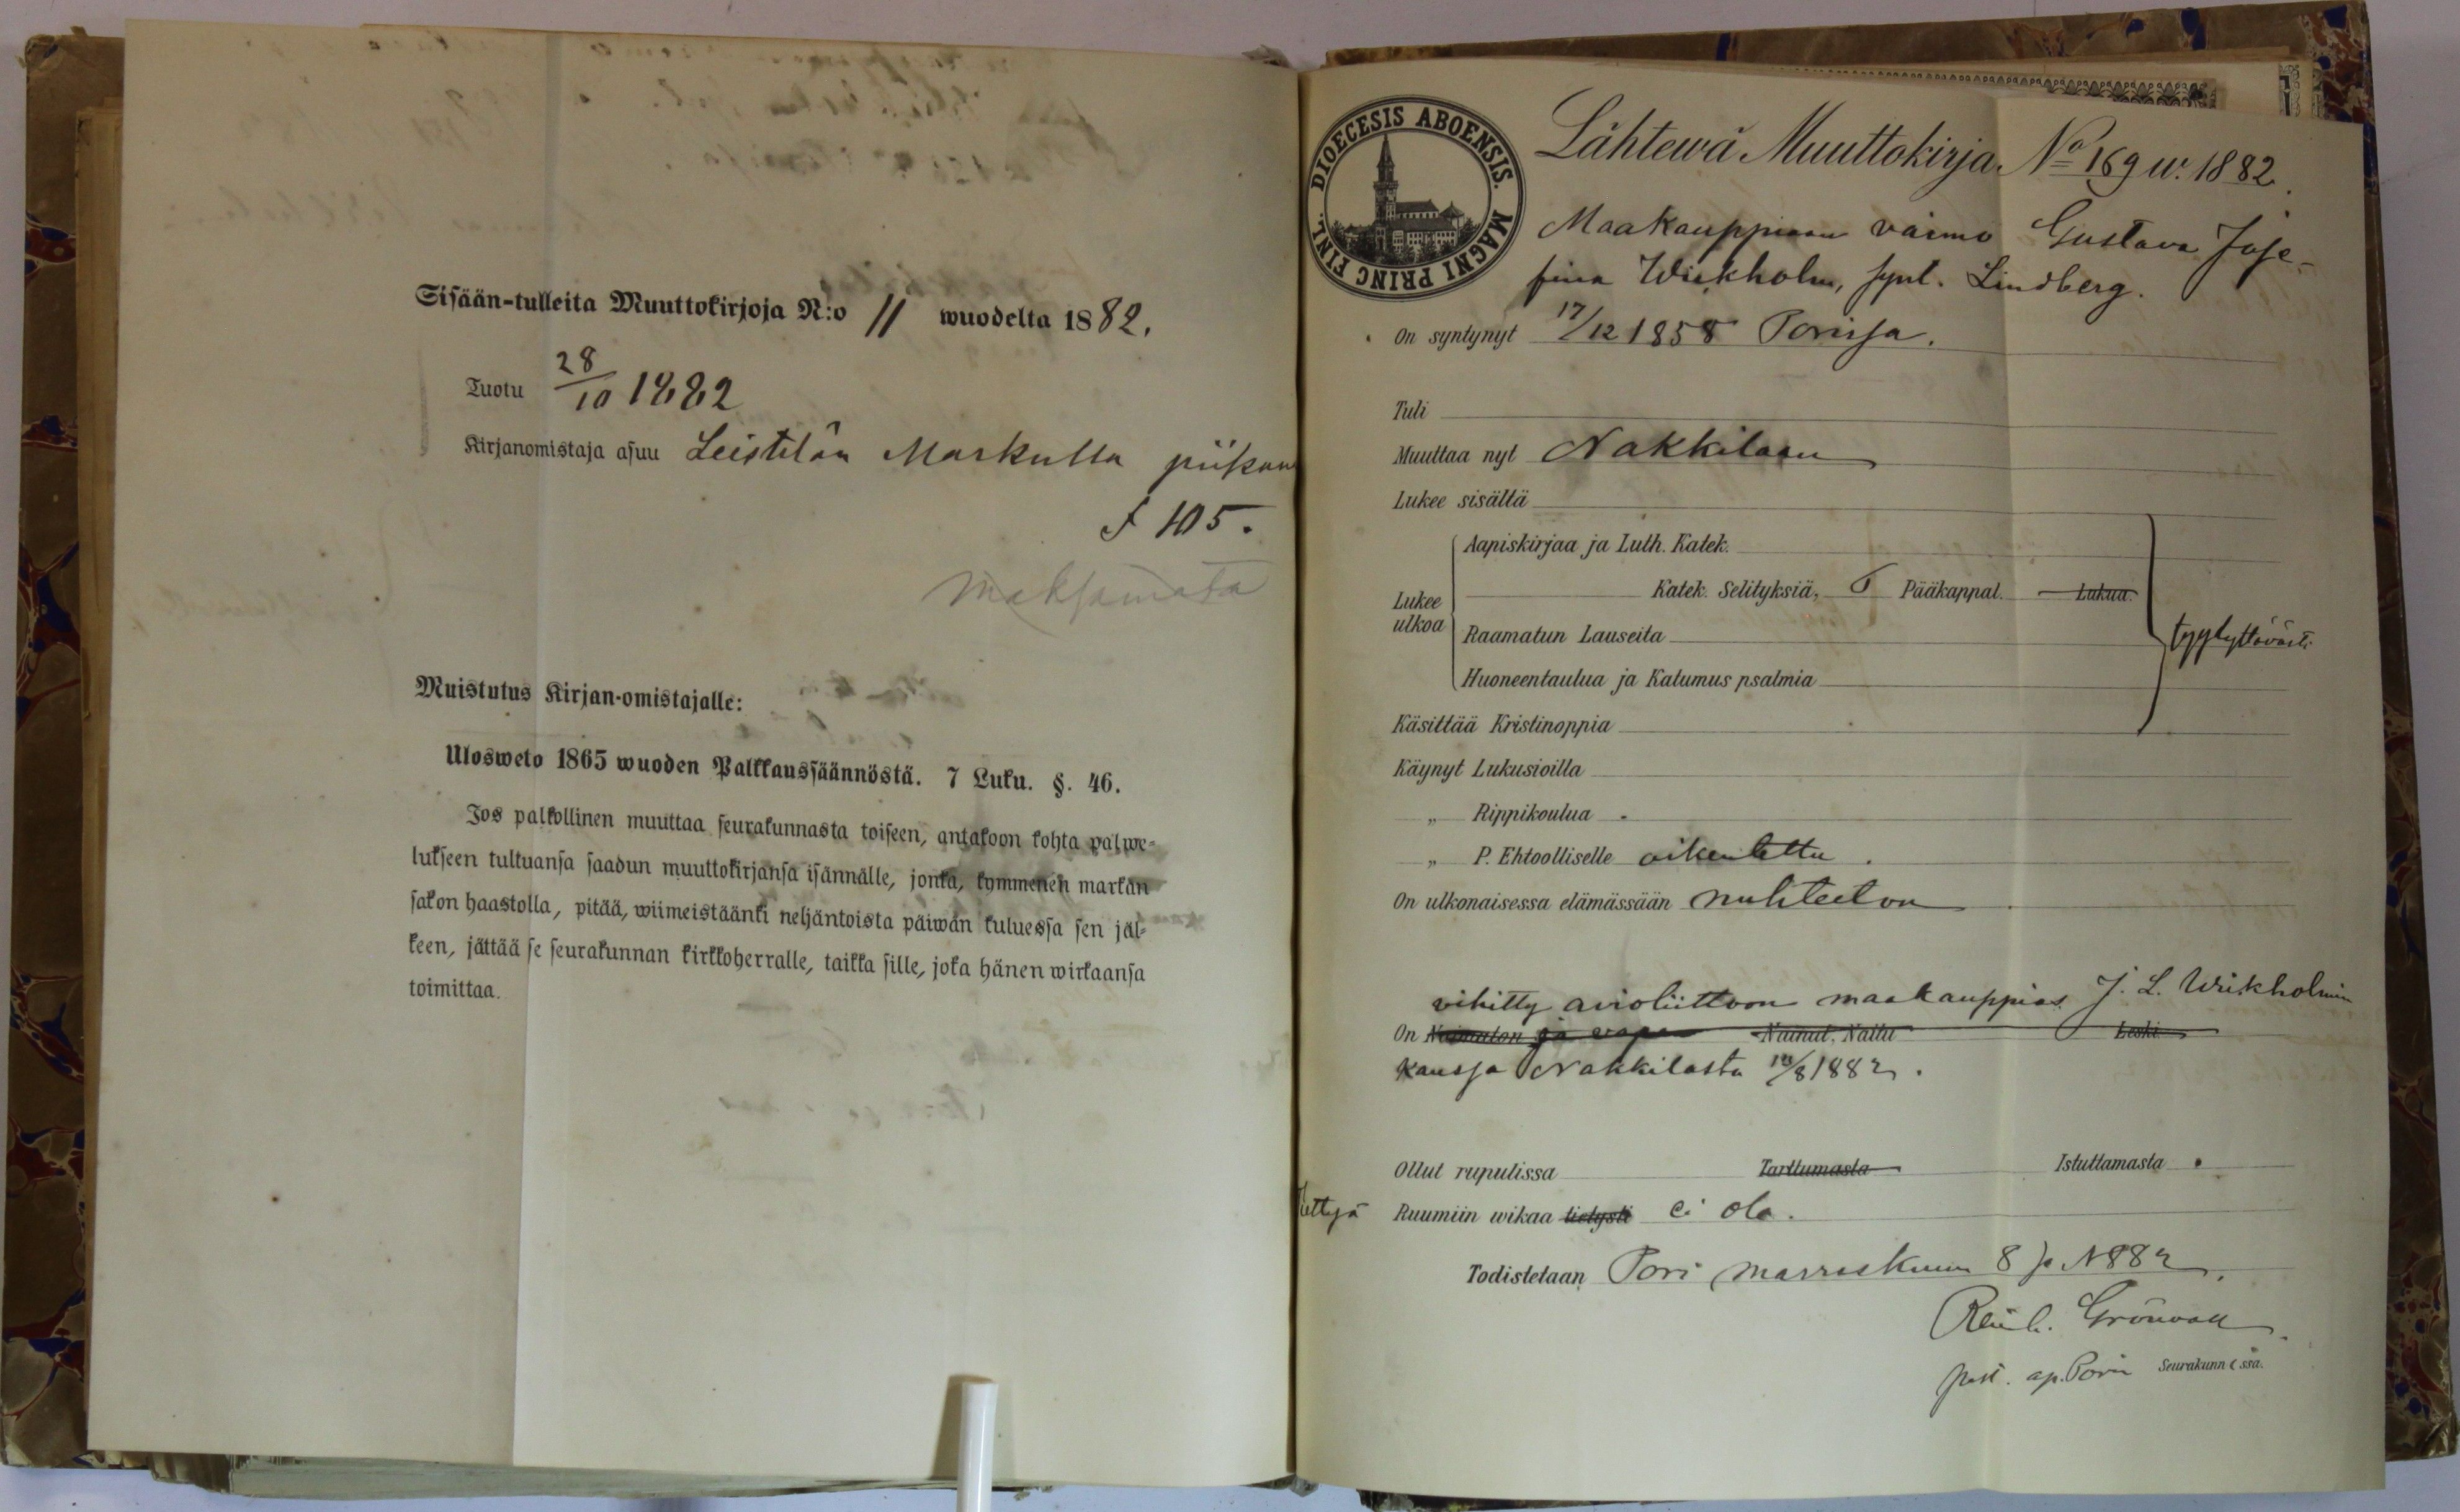 Sisään-tulleita Muuttokirjoja N:o 11 wuodelta 1882.
Tuotu 28/10 1882
Kirjanomistaja asuu Leistilän Markulla piikana
f 105.
maksamata
Muistutus Kirjan-omistajalle:
Ulosweto 1865 wuoden Palkkaussäännöstä. 7 Luku. §. 46.
Jos palkollinen muuttaa seurakunnasta toiseen, antakoon kohta palwe-
lukseen tultuansa saadun muuttokirjansa isännälle, jonka, kymmenen markan
sakon haastolla, pitää, wiimeistäänki neljäntoista päiwän kuluessa sen jäl-
keen, jättää se seurakunnan kirkkoherralle, taikka sille, joka hänen wirkaansa
toimittaa.
DIOECESIS ABOENSIS. MAGNI PRINC FINL.
Lähtewä Muuttokirja No 169 w. 1882.
Maakauppiaan vaimo Gustava Jose-
fina Wiikholm, synt. Lindberg.
On syntynyt 17/12 1858 Porissa.
Tuli
Muuttaa nyt Nakkilaan
Lukee sisältä
Aapiskirjaa ja Luth. Katek.
Lukee ulkoa
Katek. Selityksiä, 5 Pääkappal. Lukua.
tyydyttävästi
Raamatun Lauseita
Huoneentaulua ja Katumus psalmia
Käsittää Kristinoppia
Käynyt Lukusioilla
„ Rippikoulua
„ P. Ehtoolliselle oikeutettu.
On ulkonaisessa elämässään nuhteeton
vihitty avioliittoon maakauppias J. L. Wiikholmin
On Naimaton ja vapaa Nainut, Naitu Leski
kanssa Nakkilasta /8 1882.
Ollut rupulissa Tarttumasta Istuttamasta
tiettyä Ruumiin wikaa tietysti ei ole.
Todistetaan Pori marraskuun 8 p. 1882.
Reinh. Grönvall
past. ap. Porin Seurakunnessa.